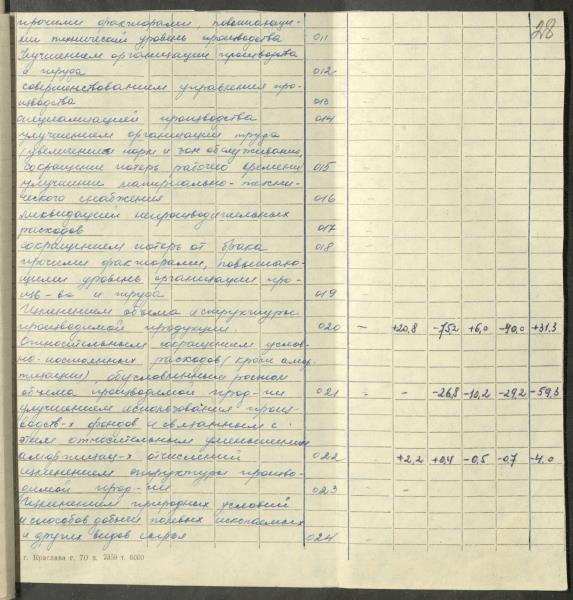 прочими факторами, повышающи-
ми технический уровень производства 011
28
Улучшением организации производства
и труда 012
совершенствованием управления про-
изводства 013
специализацией производства 014
улучшением организации труда
/увеличение норм и зон обслуживания,
сокращение потерь рабочего времени 015
улучшение материально-техни-
ческого снабжения 016
ликвидацией непроизводительных
расходов 017
сокращением потерь от брака 018
прочими факторами, повышаю-
щими уровень организации про-
из-ва и труда 019
Изменением объема и структуры
производимой продукции. 020 — +20,8 -752 +6,0 -40,0 +31,3
Относительным сокращением услов-
но-постоянных расходов/кроме амор-
тизации), обусловленным ростом
объема производимой прод-ии 021 - - -26,8 -10,2 -29,2 -59,3
улучшением использования произ-
водств-х фондов и связанным с
этим относительным уменьшением
амортизац-х отчислений 022 +2,2 +0,4 -0,5 -0,7 -4,0
изменением структуры произво-
димой прод-ии 023 -
Изменением природных условий
и способов добычи полезных ископаемых
и других видов сырья 024
г. Краслава г. 70 з. 2359 т. 6000